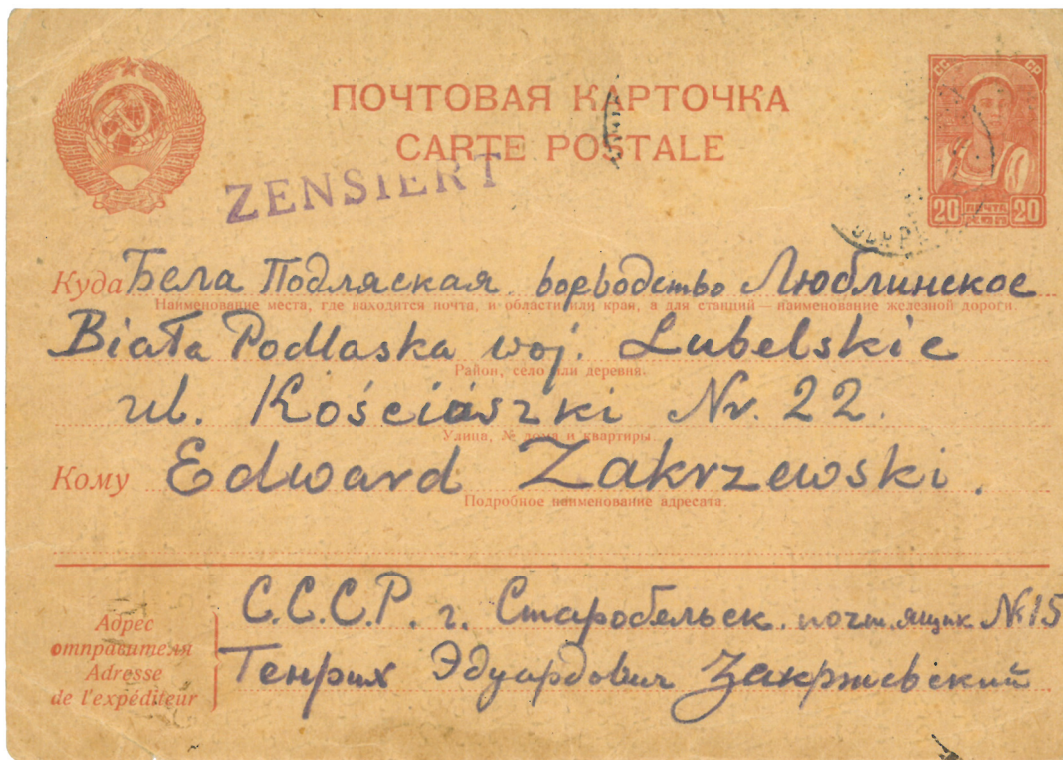 ПОЧТОВАЯ КАРТОЧКА
CARTE POSTALE
ZENSIERT
СС СР
20 ПОЧТА 20
Куда Бела Подляская воеводство Люблинское
Наименование места, где находится почта, и области или края, а для станций — наименование железной дороги.
Biała Podlaska woj. Lubelskie
Район, село или деревня.
ul. Kościószki Nr. 22.
Улица, № дома и квартиры.
Кому Edward Zakrzewski.
Подробное наименование адресата.
Адрес отправителя
Adresse de l'expéditeur
С.С.С.Р. г. Старобельск. почт. ящик №15
Генрих Эдуардович Закржевский